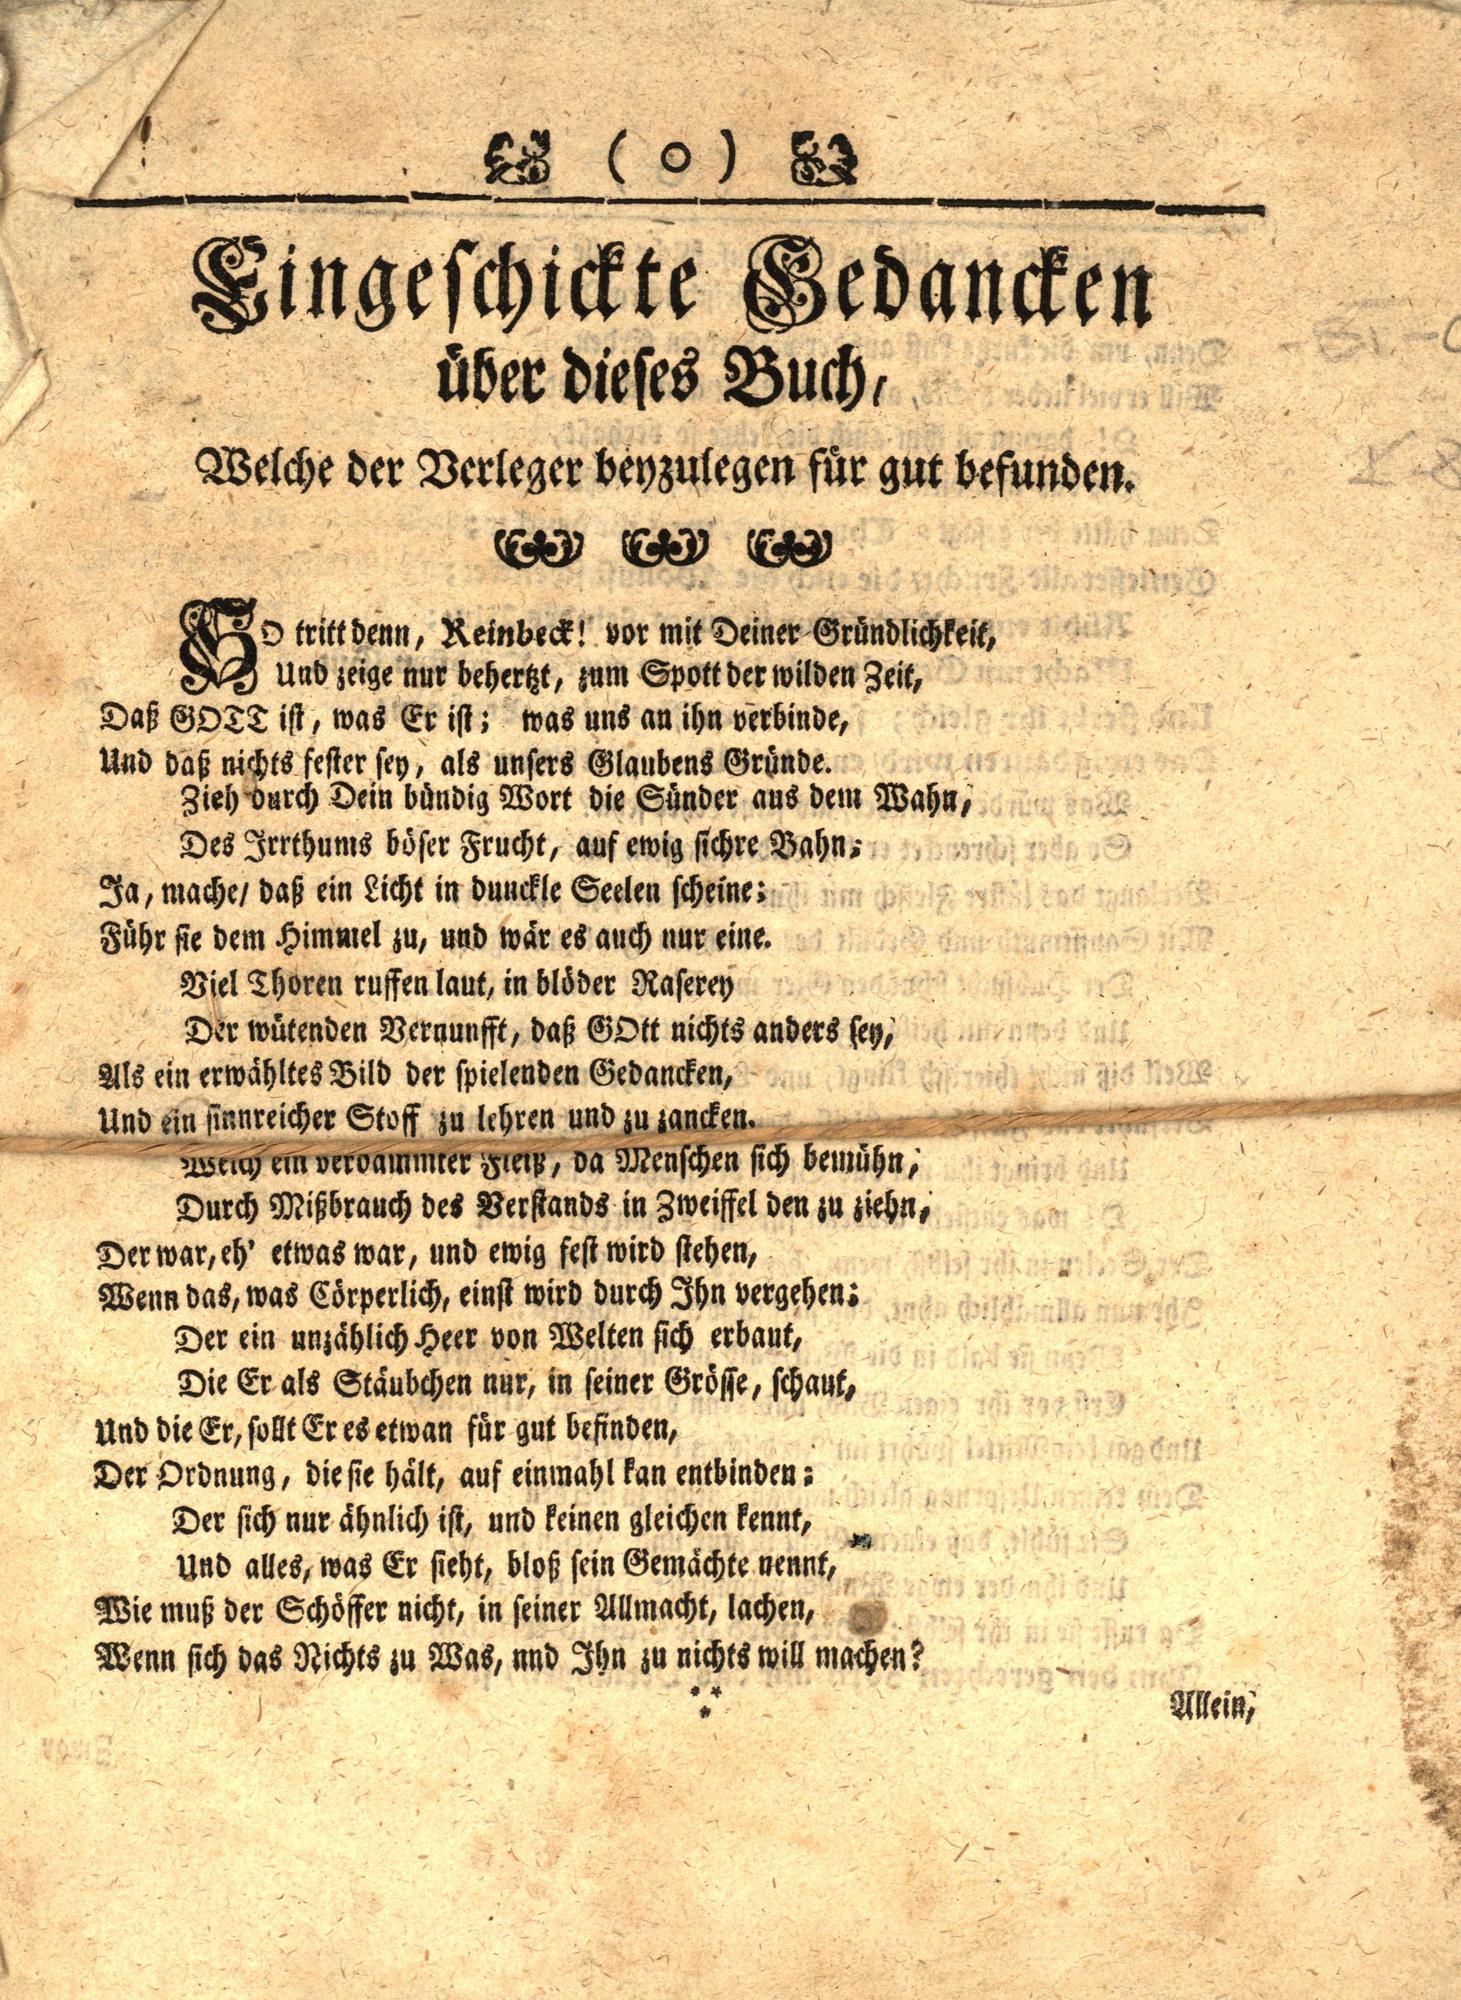 ( o )
Eingeschickte Gedancken
über dieses Buch,
Welche der Verleger beyzulegen für gut befunden.
SO tritt denn, Reinbeck! vor mit Deiner Gründlichkeit,
Und zeige nur behertzt, zum Spott der wilden Zeit,
Daß GOTT ist, was Er ist; was uns an ihn verbinde,
Und daß nichts fester sey, als unsers Glaubens Gründe.
Zieh durch Dein bündig Wort die Sünder aus dem Wahn,
Des Irrthums böser Frucht, auf ewig sichre Bahn;
Ja, mache/ daß ein Licht in dunckle Seelen scheine;
Führ sie dem Himmel zu, und wär es auch nur eine.
Viel Thoren ruffen laut, in blöder Raserey
Der wütenden Vernunfft, daß GOtt nichts anders sey,
Als ein erwähltes Bild der spielenden Gedancken,
Und ein sinnreicher Stoff zu lehren und zu zancken.
Welch ein verdammter Fleiß, da Menschen sich bemühn,
Durch Mißbrauch des Verstands in Zweiffel den zu ziehn,
Der war, eh' etwas war, und ewig fest wird stehen,
Wenn das, was Cörperlich, einst wird durch Ihn vergehen;
Der ein unzählich Heer von Welten sich erbaut,
Die Er als Stäubchen nur, in seiner Grösse, schaut,
Und die Er, sollt Er es etwan für gut befinden,
Der Ordnung, die sie hält, auf einmahl kan entbinden;
Der sich nur ähnlich ist, und keinen gleichen kennt,
Und alles, was Er sieht, bloß sein Gemächte nennt,
Wie muß der Schöffer nicht, in seiner Allmacht, lachen,
Wenn sich das Nichts zu Was, nnd Ihn zu nichts will machen?
Allein,